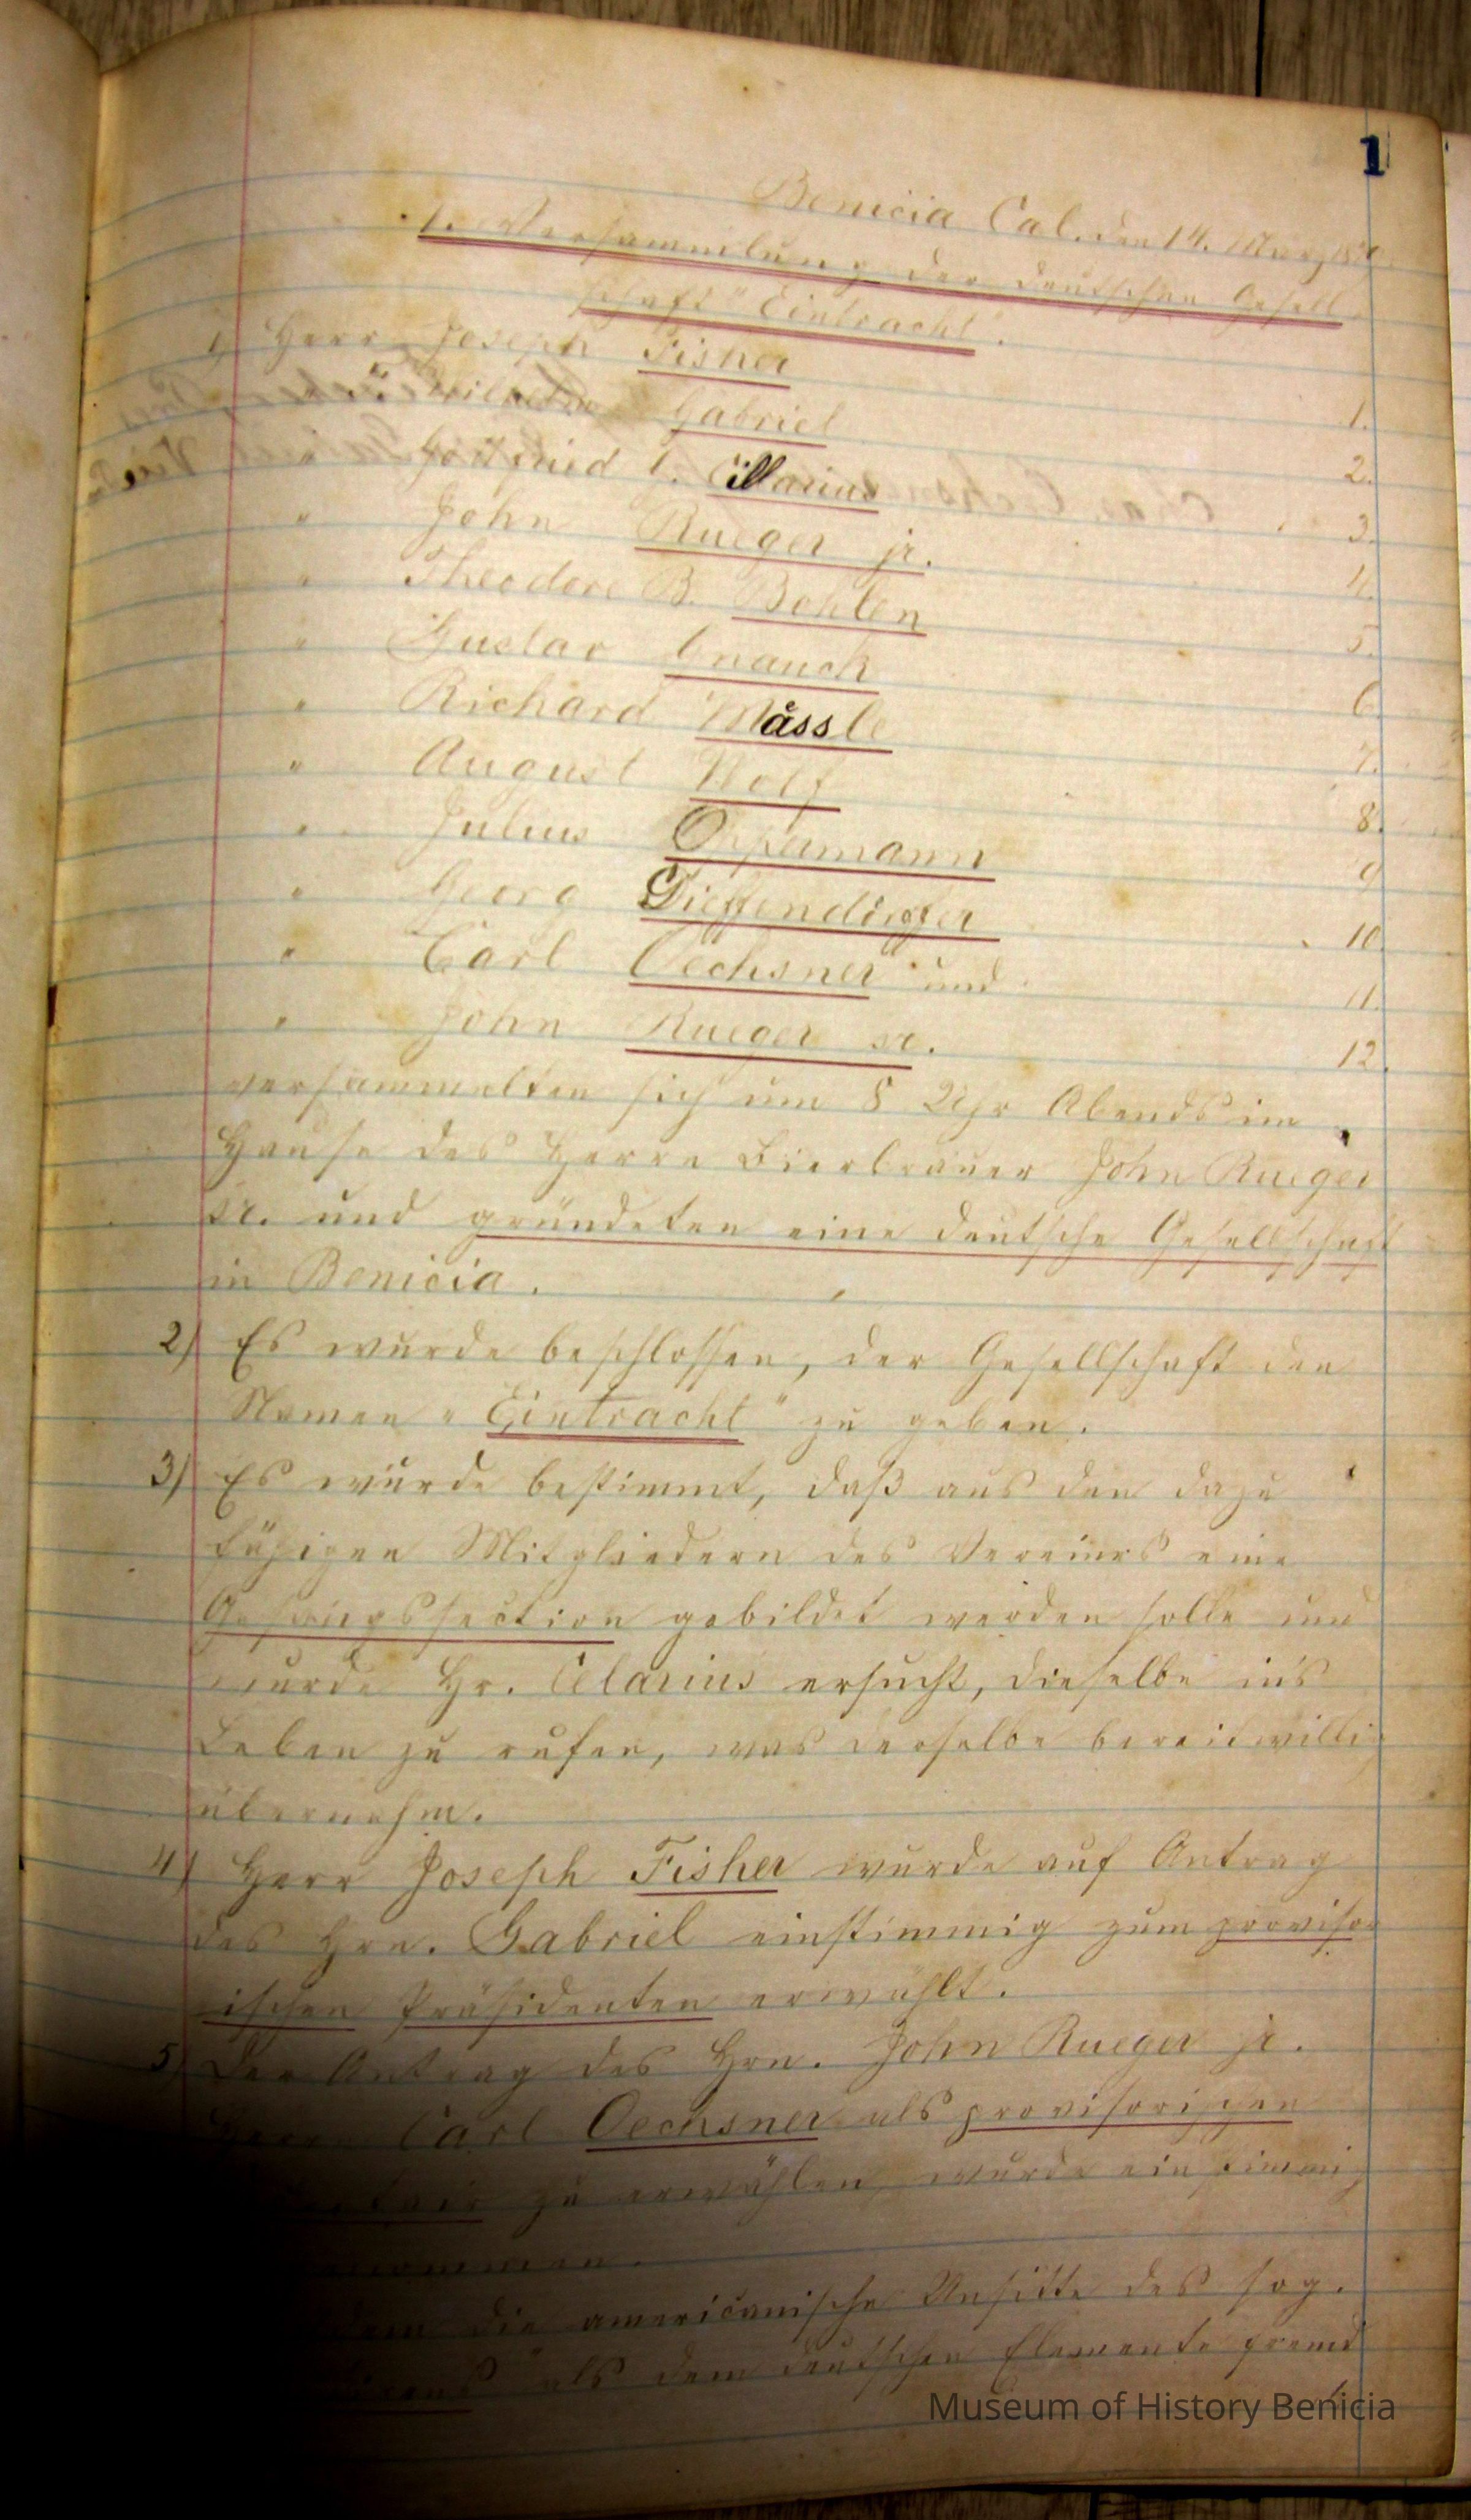 1
Benicia Cal. den 14. März
1. Versammlung der deutschen Gesell-
schaft "Eintracht".
1) Herr Joseph Fisher 1.
" Wilhelm Gabriel 2.
" Gottfried G. Cillarius 3.
" John Rueger jr. 4.
" Theodore B. Bohlen 5.
" Gustav Gnauck 6
" Richard Mässle 7.
" August Wolf 8.
" Julius Oppermann 9
" Georg Dieffendorffer 10
" Carl Oechsner und 11.
" John Rueger sr. 12.
versammelten sich um 8 Uhr Abends im
Hause des Herrn Bierbrauer John Rueger
sr. und gründeten eine deutsche Gesellschaft
in Benicia.
2) Es wurde beschlossen, der Gesellschaft den
Namen "Eintracht" zu geben.
3) Es wurde bestimmt, daß aus den dazu
fähigen Mitgliedern des Vereines eine
Gesangssection gebildet werden solle und
wurde Hr. Cilarius ersucht, dieselbe in's
Leben zu rufen, was derselbe bereitwillig
übernahm.
4) Herr Joseph Fisher wurde auf Antrag
des Hrn. Gabriel einstimmig zum provisor-
ischen Präsidenten erwählt.
5) Der Antrag des Hrn. John Rueger jr.
Herrn Carl Oechsner als provisorischen
zu erwählen, wurde einstimmig
die americanische Unsitte des sog.
als dem deutschen Elemente fremd
Museum of History Benicia